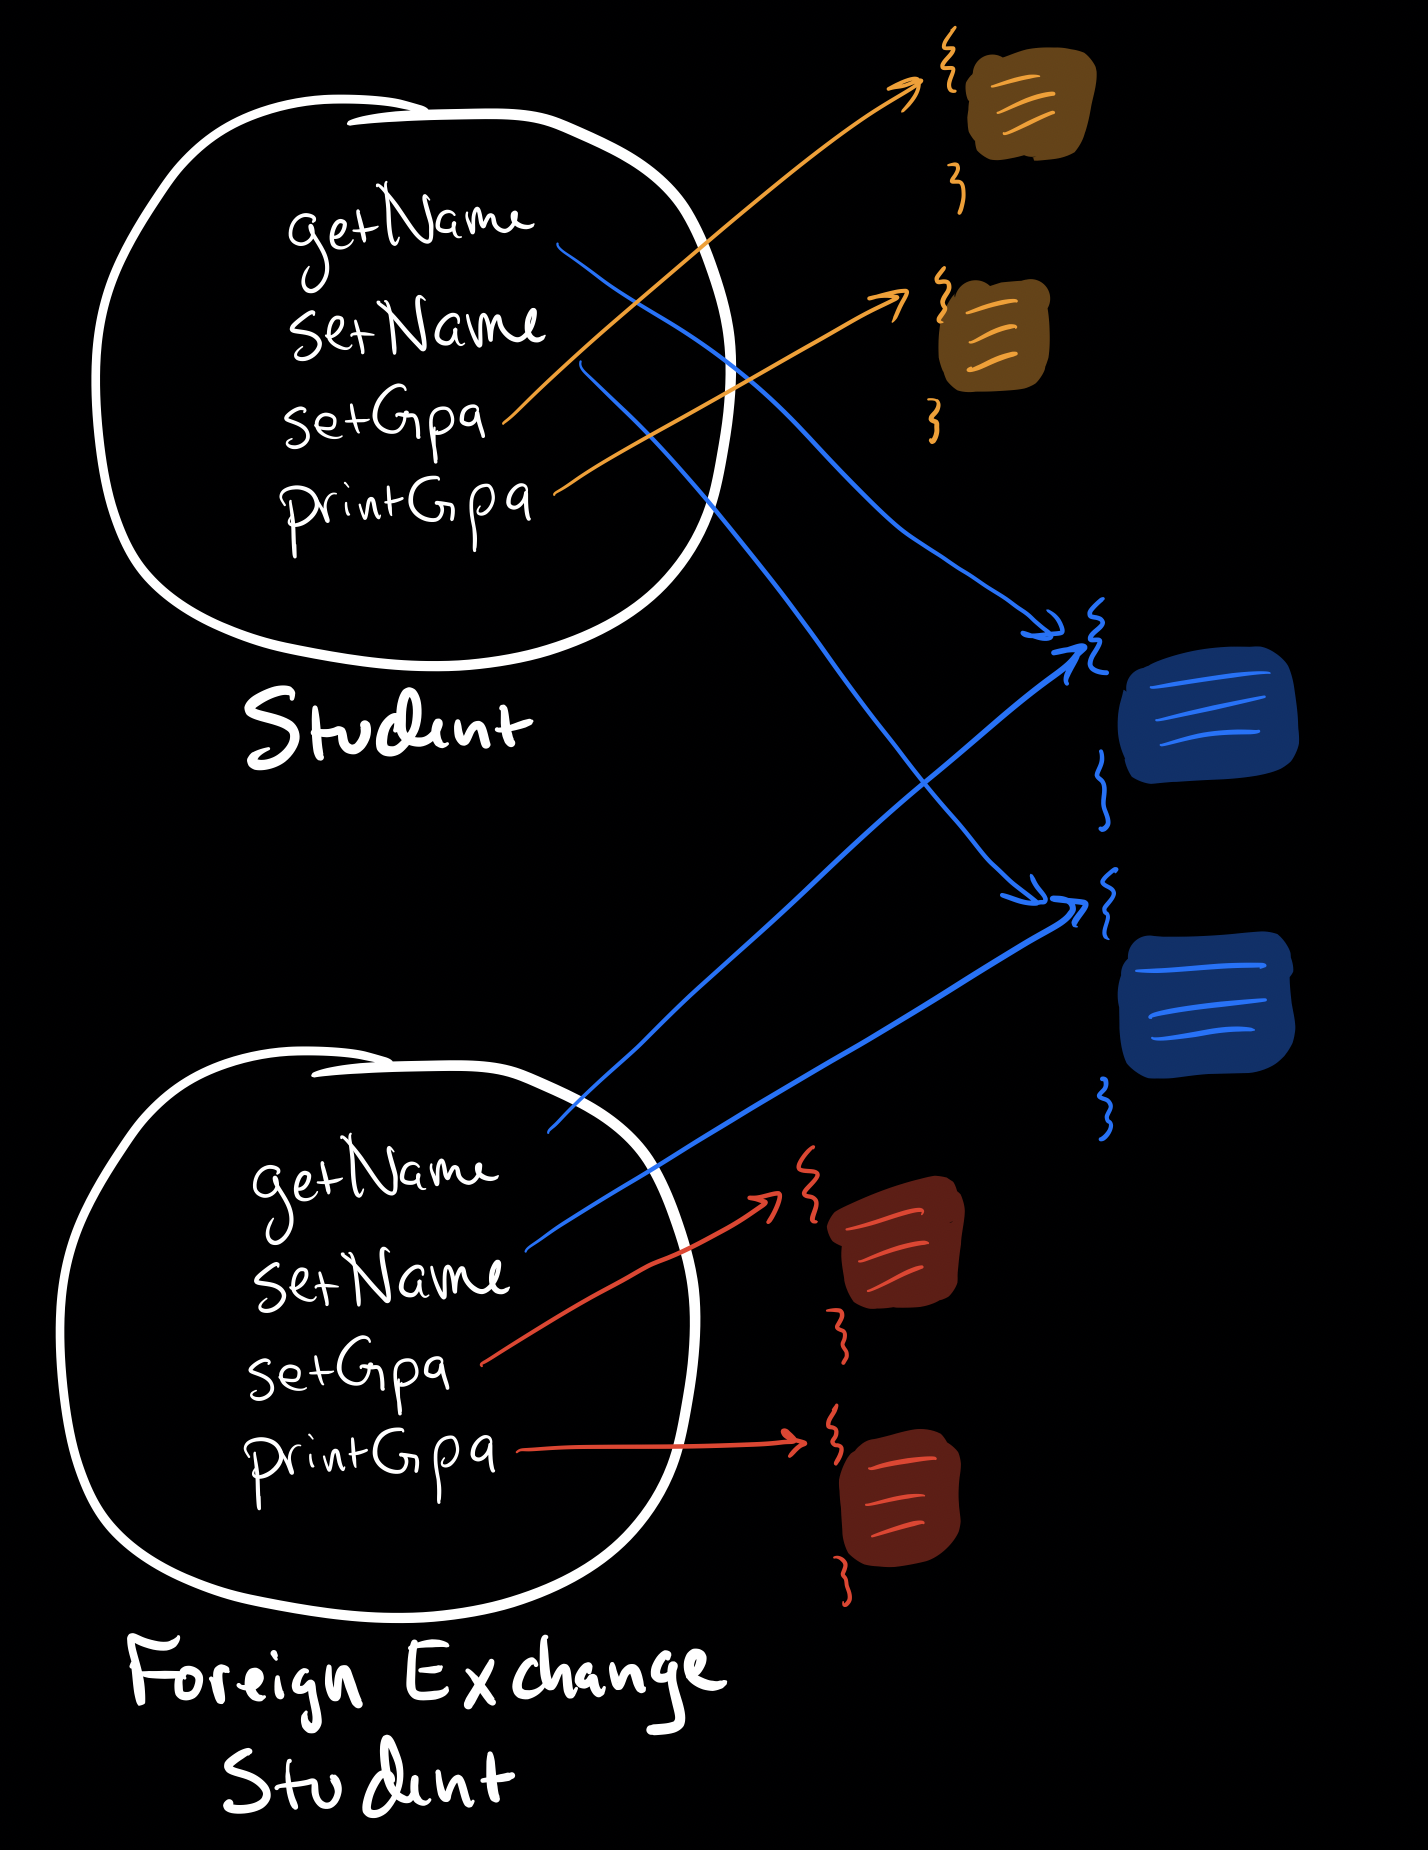 getName
setName
setGpa
printGpa
Student
getName
setName
setGpa
printGpa
Foreign Exchange
Student